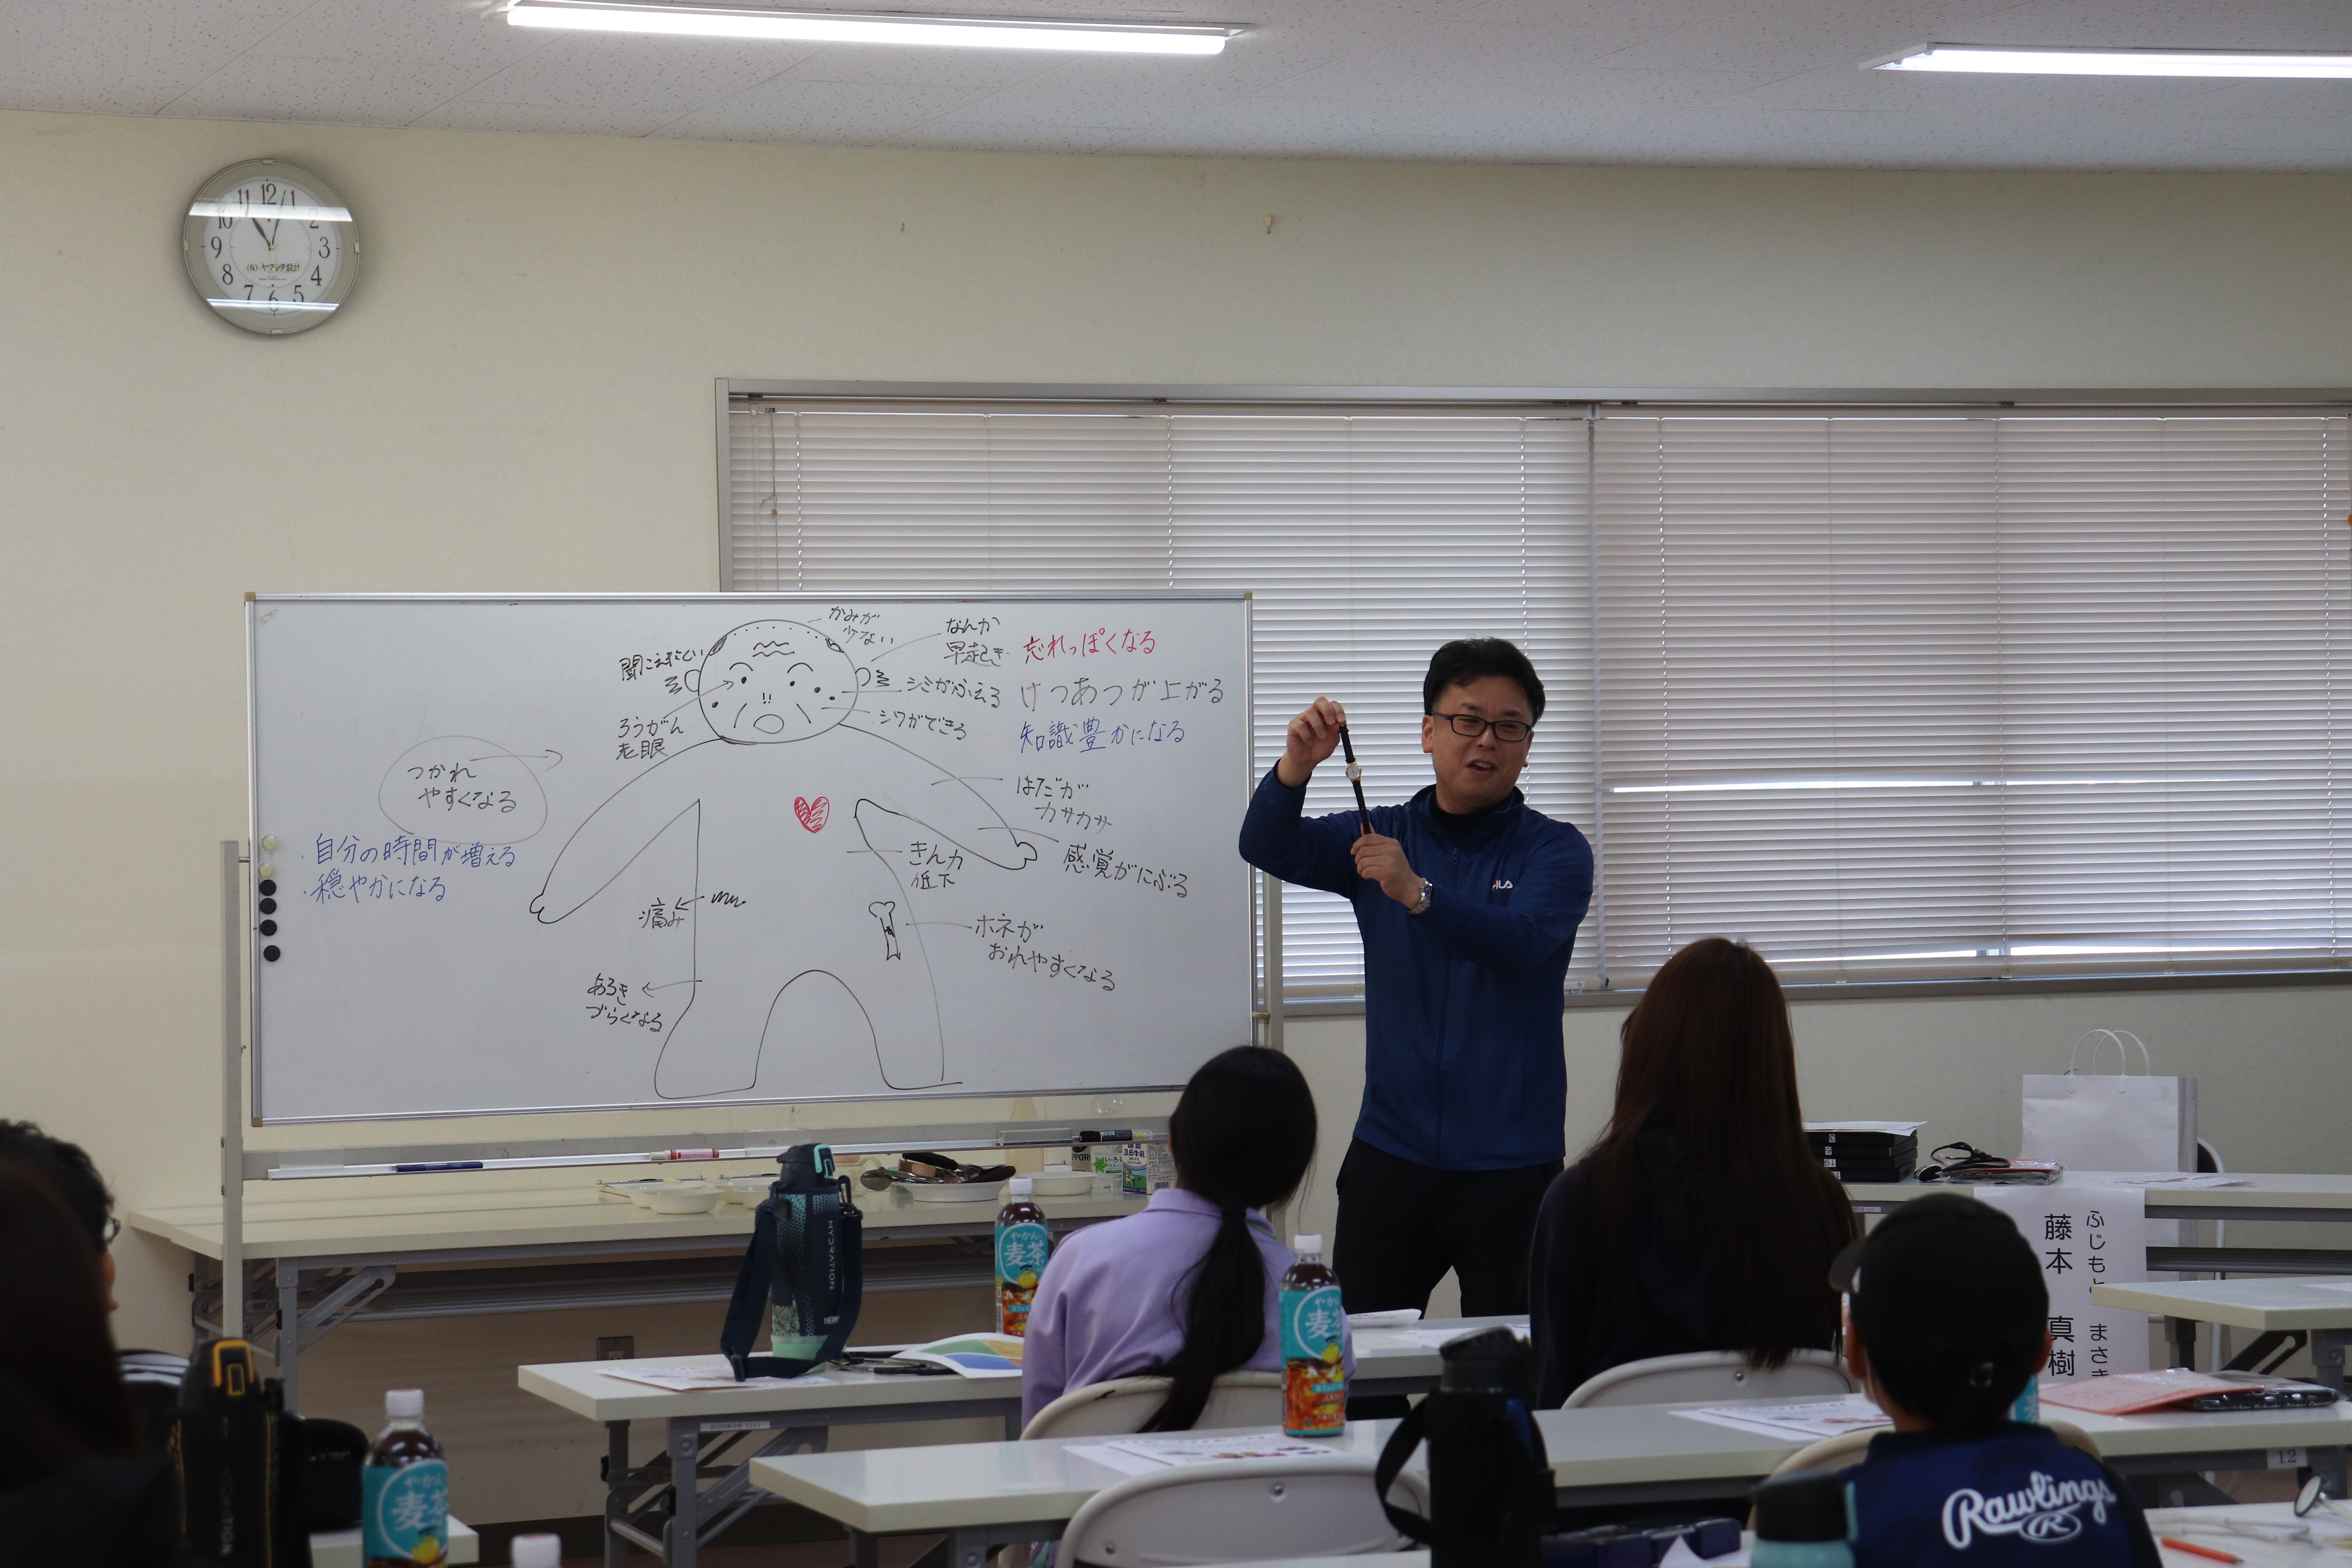 12
1
2
3
4
5
6
7
8
9
10
11
(有)ヤマシタ設計
かみが
少ない
なんか
早起き
忘れっぽくなる
聞こえにくい
シミがふえる
けつあつが上がる
シワができる
知識豊かになる
ろうがん
老眼
つかれ
やすくなる
はだが
カサカサ
・自分の時間が増える
・穏やかになる
きん力
低下
感覚がにぶる
痛み
ホネが
おれやすくなる
あるき
づらくなる
FILA
3.6牛乳
HYDRATION
THERMOS
やかんの
麦茶
やかん
麦茶
やかんの
麦茶
ふじもと まさき
藤本 真樹
12
Rawlings
R